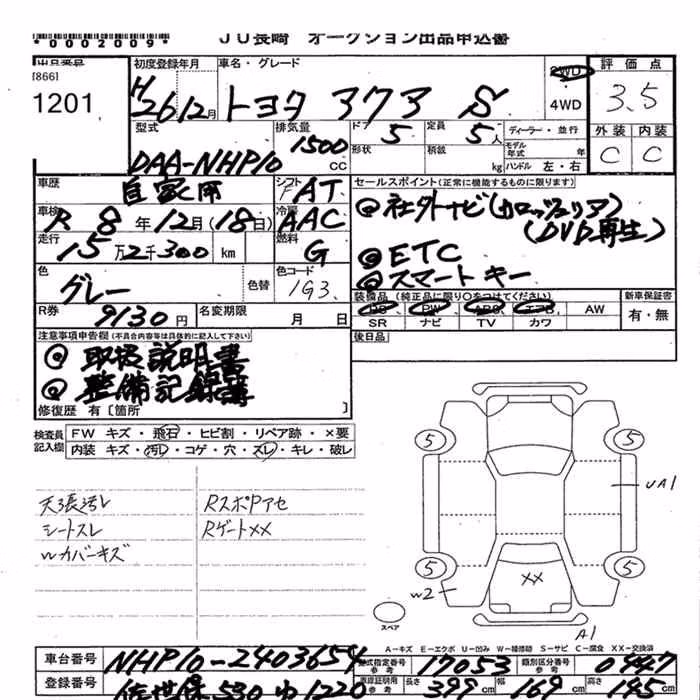 *0002009*
JU長崎 オークション出品申込書
出品番号
[866]
1201
初度登録年月
H26 12月
車名・グレード
トヨタ アクア S
2WD
4WD
評価点
3.5
外装 内装
C C
型式
DAA-NHP10
排気量
1500 CC
ドア
5
定員
5人
形状
積載
kg
ディーラー・並行
モデル年式 年
ハンドル 左・右
車歴
自家用
シフト
F AT
車検
R 8年12月(18日)
冷房
AAC
走行
15万2千300 km
燃料
G
色
グレー
色替
色コード
1G3
R券
9130円
名変期限
月 日
セールスポイント(正常に機能するものに限ります)
◎社外ナビ(カロッツェリア)
(DVD再生)
◎ETC
◎スマートキー
装備品 (純正品に限り○をつけてください)
PS PW ABS エアB AW
SR ナビ TV カワ
新車保証書
有・無
後日品
注意事項申告欄(不具合内容等は具体的に記入して下さい)
◎取扱説明書
◎整備記録簿
修復歴 有[箇所 ]
検査員記入欄
FW キズ・飛石・ヒビ割・リペア跡・×要
内装 キズ・汚レ・コゲ・穴・スレ・キレ・破レ
天張汚レ
シートスレ
wカバーキズ
RスポPアセ
Rゲートxx
5
5
UA1
5
5
w2
xx
A1
スペア
A-キズ E-エクボ U-凹み W-補修跡 S-サビ C-腐食 XX-交換済
車台番号
NHP10-2403654
型式指定番号
参考
17053
類別区分番号
参考
0447
登録番号
佐世保 530 ゆ 1220
車庫証明
参考
長さ 399 cm
幅 169 cm
高さ 145 cm